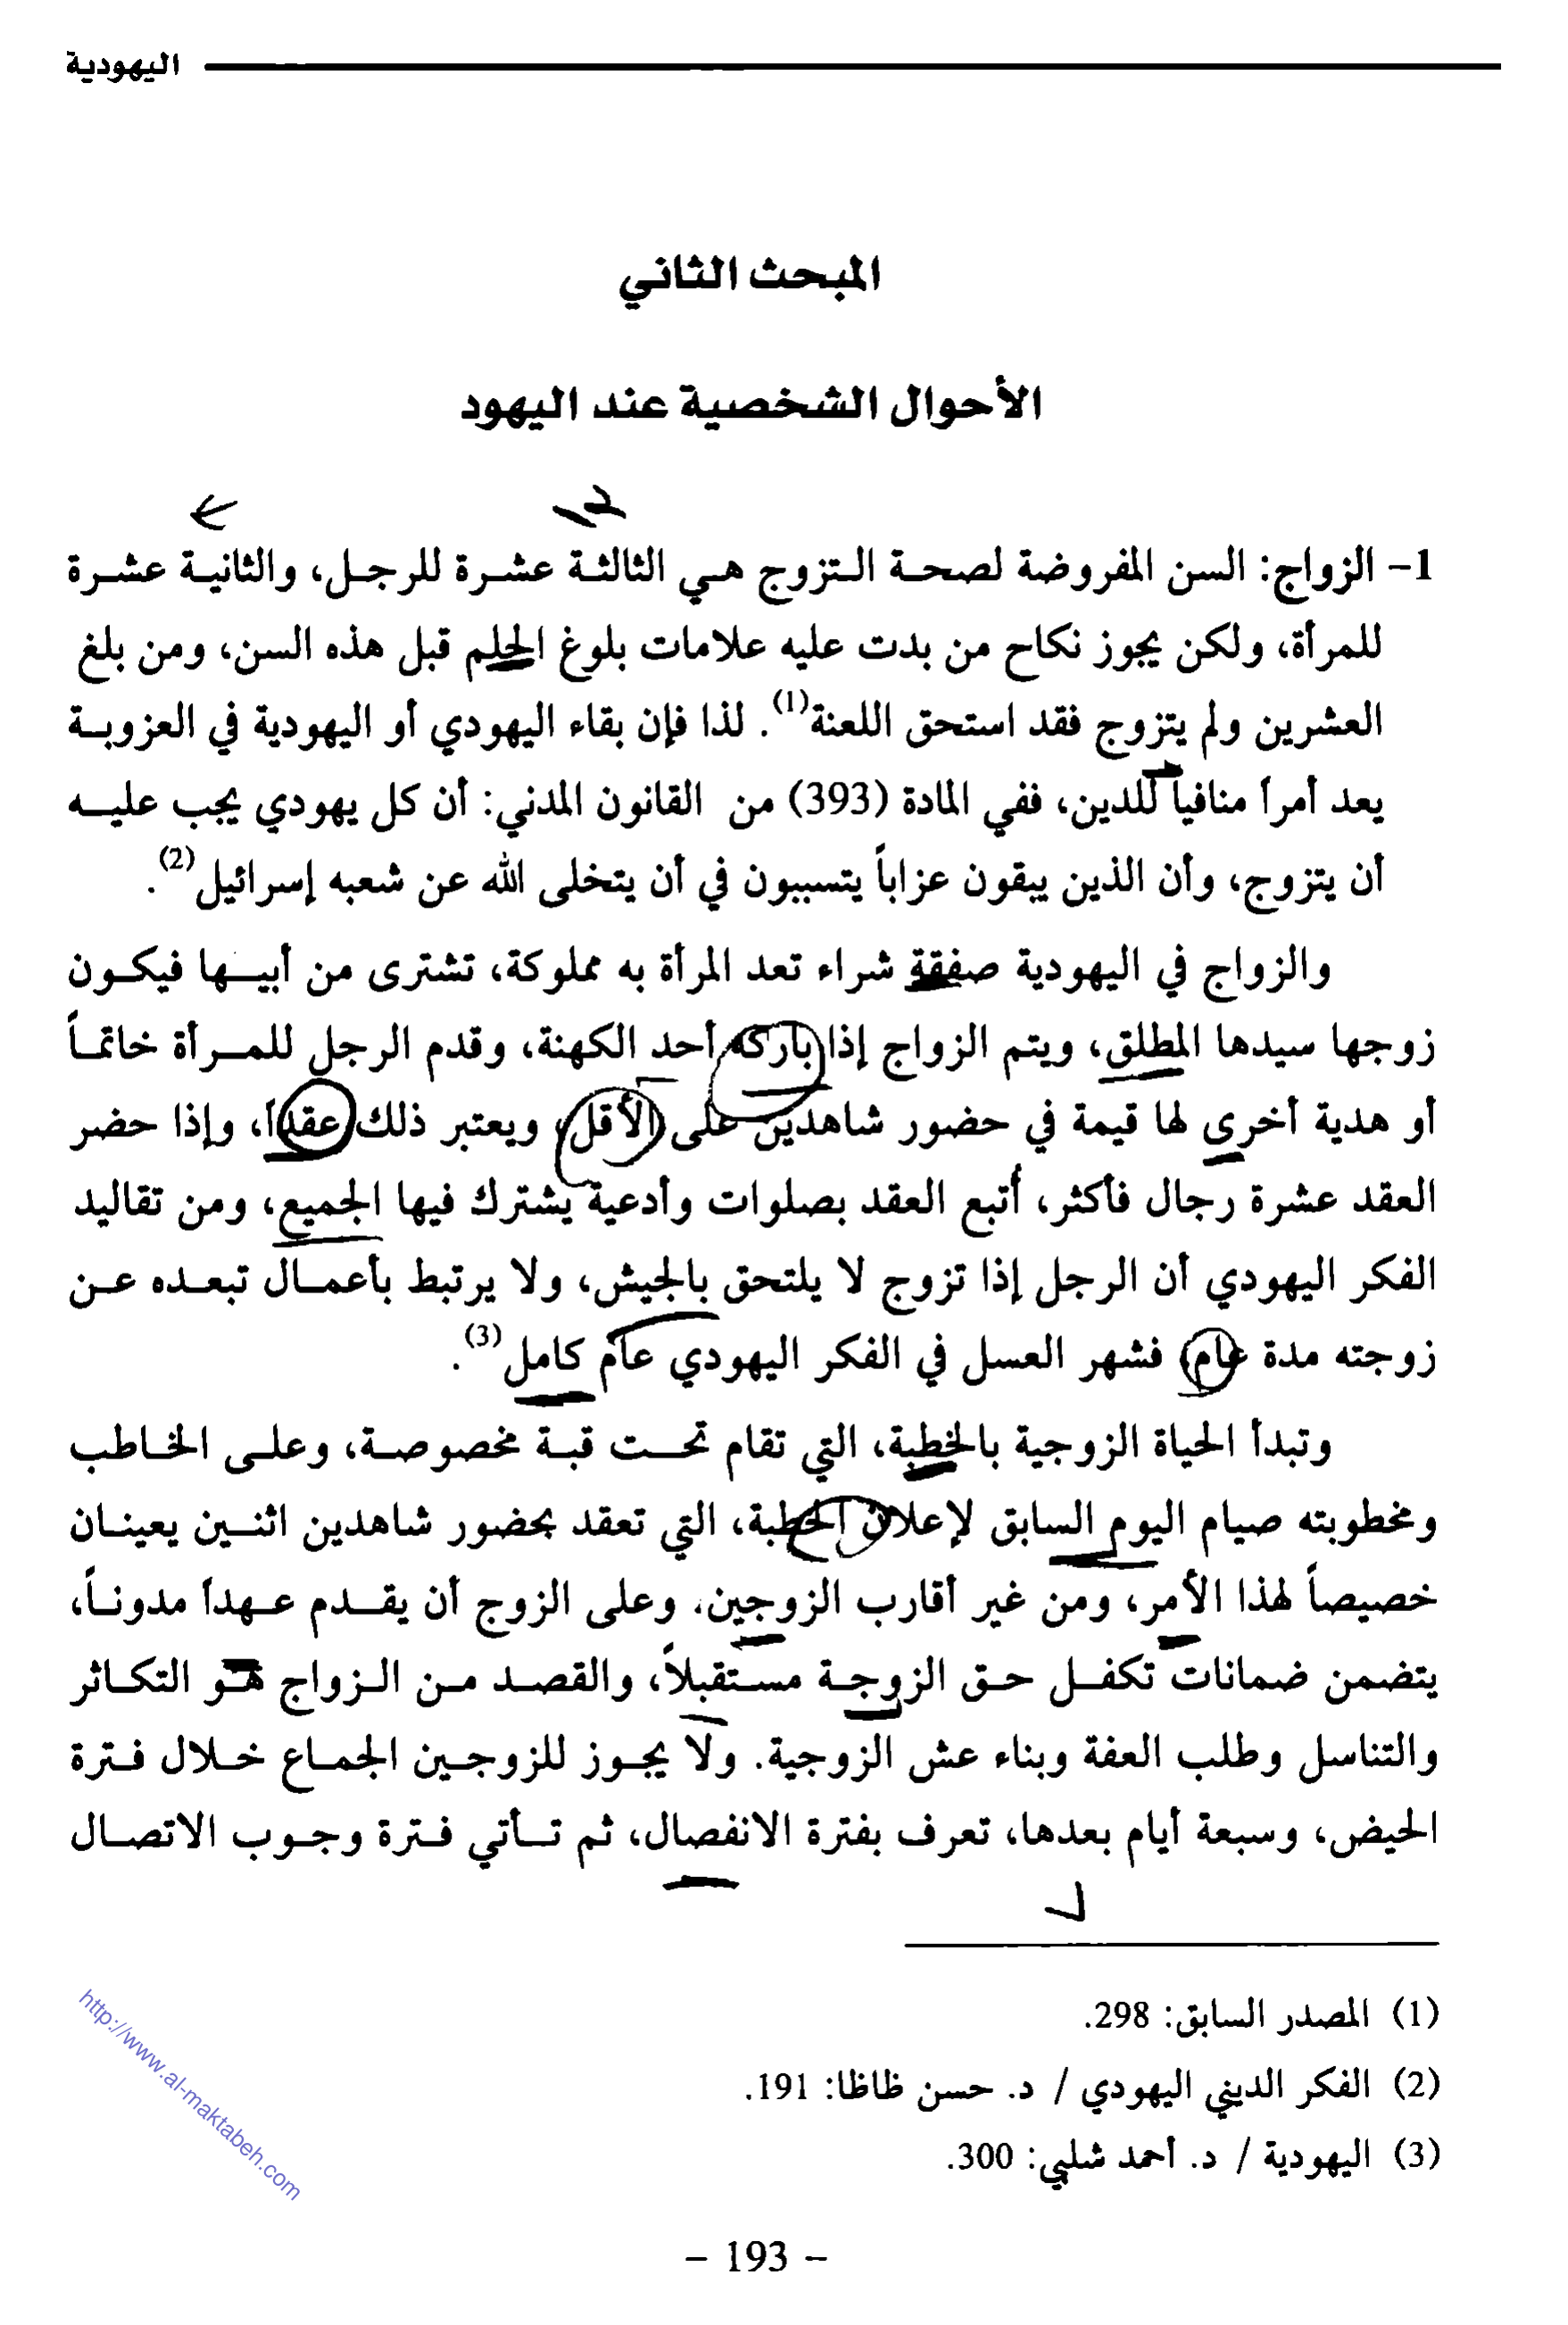 اليهودية
المبحث الثاني
الأحوال الشخصية عند اليهود
1- الزواج: السن المفروضة لصحة التزوج هي الثالثة عشرة للرجل، والثانية عشرة
للمرأة، ولكن يجوز نكاح من بدت عليه علامات بلوغ الحلم قبل هذه السن، ومن بلغ
العشرين ولم يتزوج فقد استحق اللعنة(1). لذا فإن بقاء اليهودي أو اليهودية في العزوبة
يعد أمراً منافياً للدين، ففي المادة (393) من القانون المدني: أن كل يهودي يجب عليه
أن يتزوج، وأن الذين يبقون عزاباً يتسببون في أن يتخلى الله عن شعبه إسرائيل(2).
والزواج في اليهودية صفقة شراء تعد المرأة به مملوكة، تشترى من أبيها فيكون
زوجها سيدها المطلق، ويتم الزواج إذا باركه أحد الكهنة، وقدم الرجل للمرأة خاتماً
أو هدية أخرى لها قيمة في حضور شاهدين على الأقل، ويعتبر ذلك عقداً، وإذا حضر
العقد عشرة رجال فأكثر، أُتبع العقد بصلوات وأدعية يشترك فيها الجميع، ومن تقاليد
الفكر اليهودي أن الرجل إذا تزوج لا يلتحق بالجيش، ولا يرتبط بأعمال تبعده عن
زوجته مدة عام فشهر العسل في الفكر اليهودي عام كامل(3).
وتبدأ الحياة الزوجية بالخطبة، التي تقام تحت قبة مخصوصة، وعلى الخاطب
ومخطوبته صيام اليوم السابق لإعلان الخطبة، التي تعقد بحضور شاهدين اثنين يعينان
خصيصاً لهذا الأمر، ومن غير أقارب الزوجين، وعلى الزوج أن يقدم عهداً مدوناً،
يتضمن ضمانات تكفل حق الزوجة مستقبلاً، والقصد من الزواج هو التكاثر
والتناسل وطلب العفة وبناء عش الزوجية. ولا يجوز للزوجين الجماع خلال فترة
الحيض، وسبعة أيام بعدها، تعرف بفترة الانفصال، ثم تأتي فترة وجوب الاتصال
(1) المصدر السابق: 298.
(2) الفكر الديني اليهودي / د. حسن ظاظا: 191.
(3) اليهودية / د. أحمد شلبي: 300.
http://www.al-maktabeh.com
- 193 -